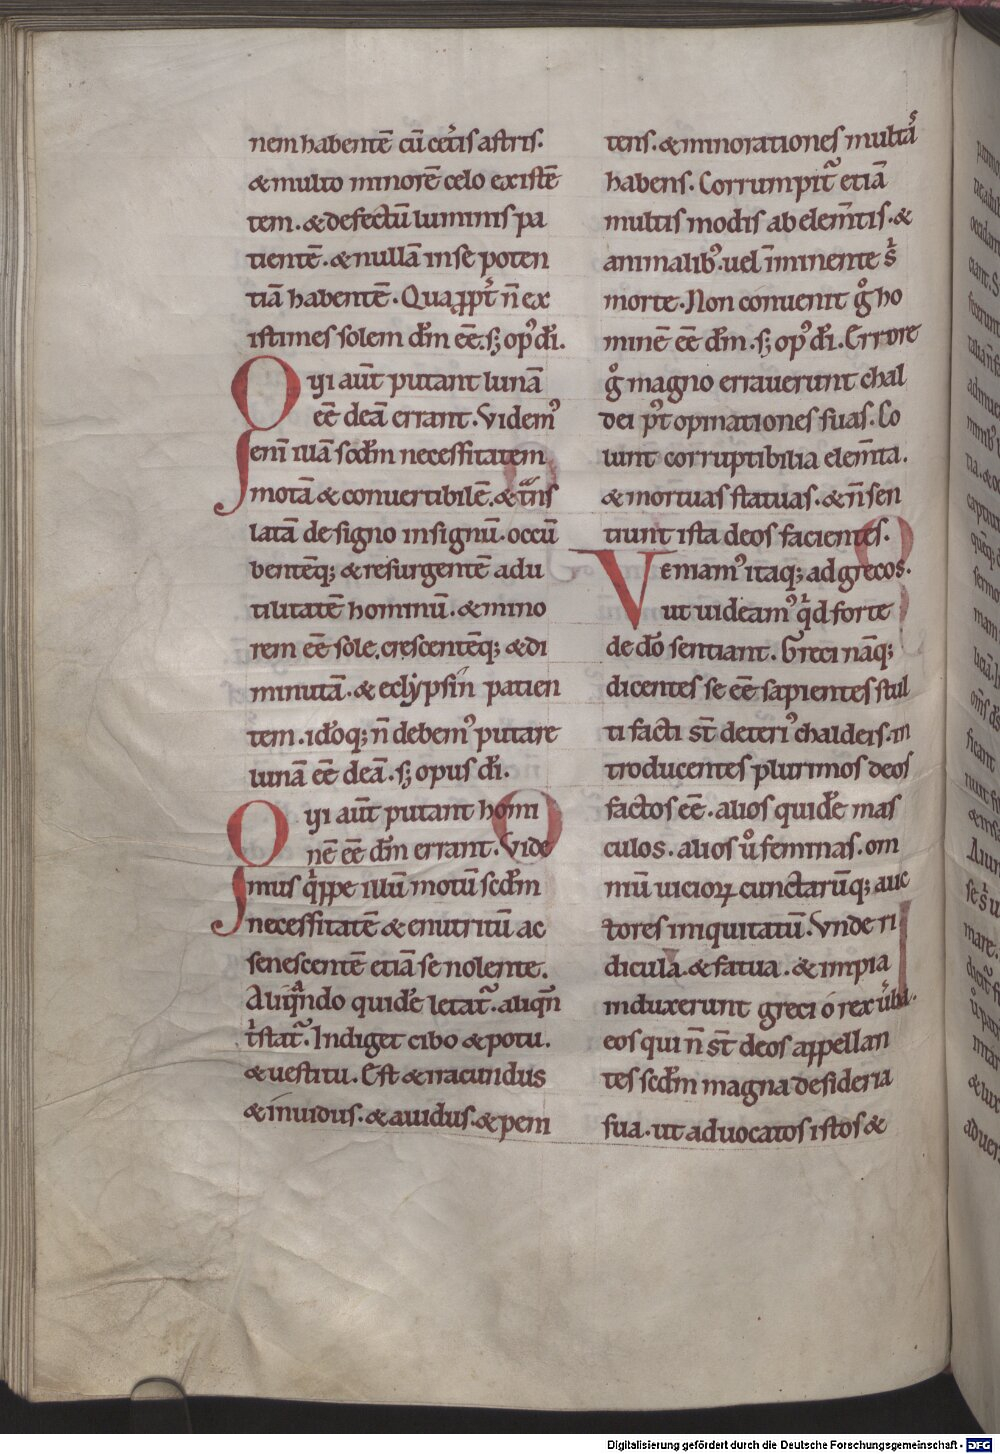 nem habentē cū cet̄is astris.
& multo minorē celo existē
tem. & defectū luminis pa
tientē. & nullā in se poten
tiā habentē. Quapp̄t n̄ ex
istimes solem dm̄ eē. sꝫ opꝰ dī.
Qui aūt putant lunā
eē deā errant. Videmꝰ
enī illā scdm̄ necessitatem
motā & conuertibilē. & tn̄s
latā de signo in signū. occū
bentēqꝫ & resurgentē ad u
tilitatē hominū. & mino
rem eē sole. crescentēqꝫ & di
minutā. & eclypsin patien
tem. id̄oqꝫ n̄ debemꝰ putare
lunā eē deā. sꝫ opus dī.
Qui aūt putant homi
nē eē dm̄ errant. Vide
mus q̄ppe illū motū scdm̄
necessitatē & enutritū ac
senescentē etiā se nolente.
Aliqn̄do quidē letat̄. aliqn̄
t̄stat̄. Indiget cibo & potu.
& uestitu. Est & iracundus
& inuidus. & auidus. & peni
tens. & minorationes multas
habens. Corrumpit̄ etiā
multis modis ab elem̄tis. &
animalibꝰ. uel īminente s̄
morte. Non conuenit gͦ ho
minē eē dm̄. sꝫ opꝰ dī. Errore
gͦ magno errauerunt chal
dei p̄t opinationes suas. Co
lunt corruptibilia elem̄ta.
& mortuas statuas. & n̄ sen
tiunt ista deos facientes.
Veniamꝰ itaqꝫ ad grecos.
ut uideamꝰ qd̄ forte
de dō sentiant. Greci nāqꝫ
dicentes se eē sapientes stul
ti facti st̄ deteriꝰ chaldeis. in
troducentes plurimos deos
factos eē. alios quidē mas
culos. alios uͦ feminas. om
niū uicioꝝ cunctarūqꝫ auc
tores iniquitatū. Vnde ri
dicula. & fatua. & impia
induxerunt greci o rex uba.
eos qui n̄ st̄ deos appellan
tes scdm̄ magna desideria
sua. ut aduocatos istos &
Digitalisierung gefördert durch die Deutsche Forschungsgemeinschaft - DFG